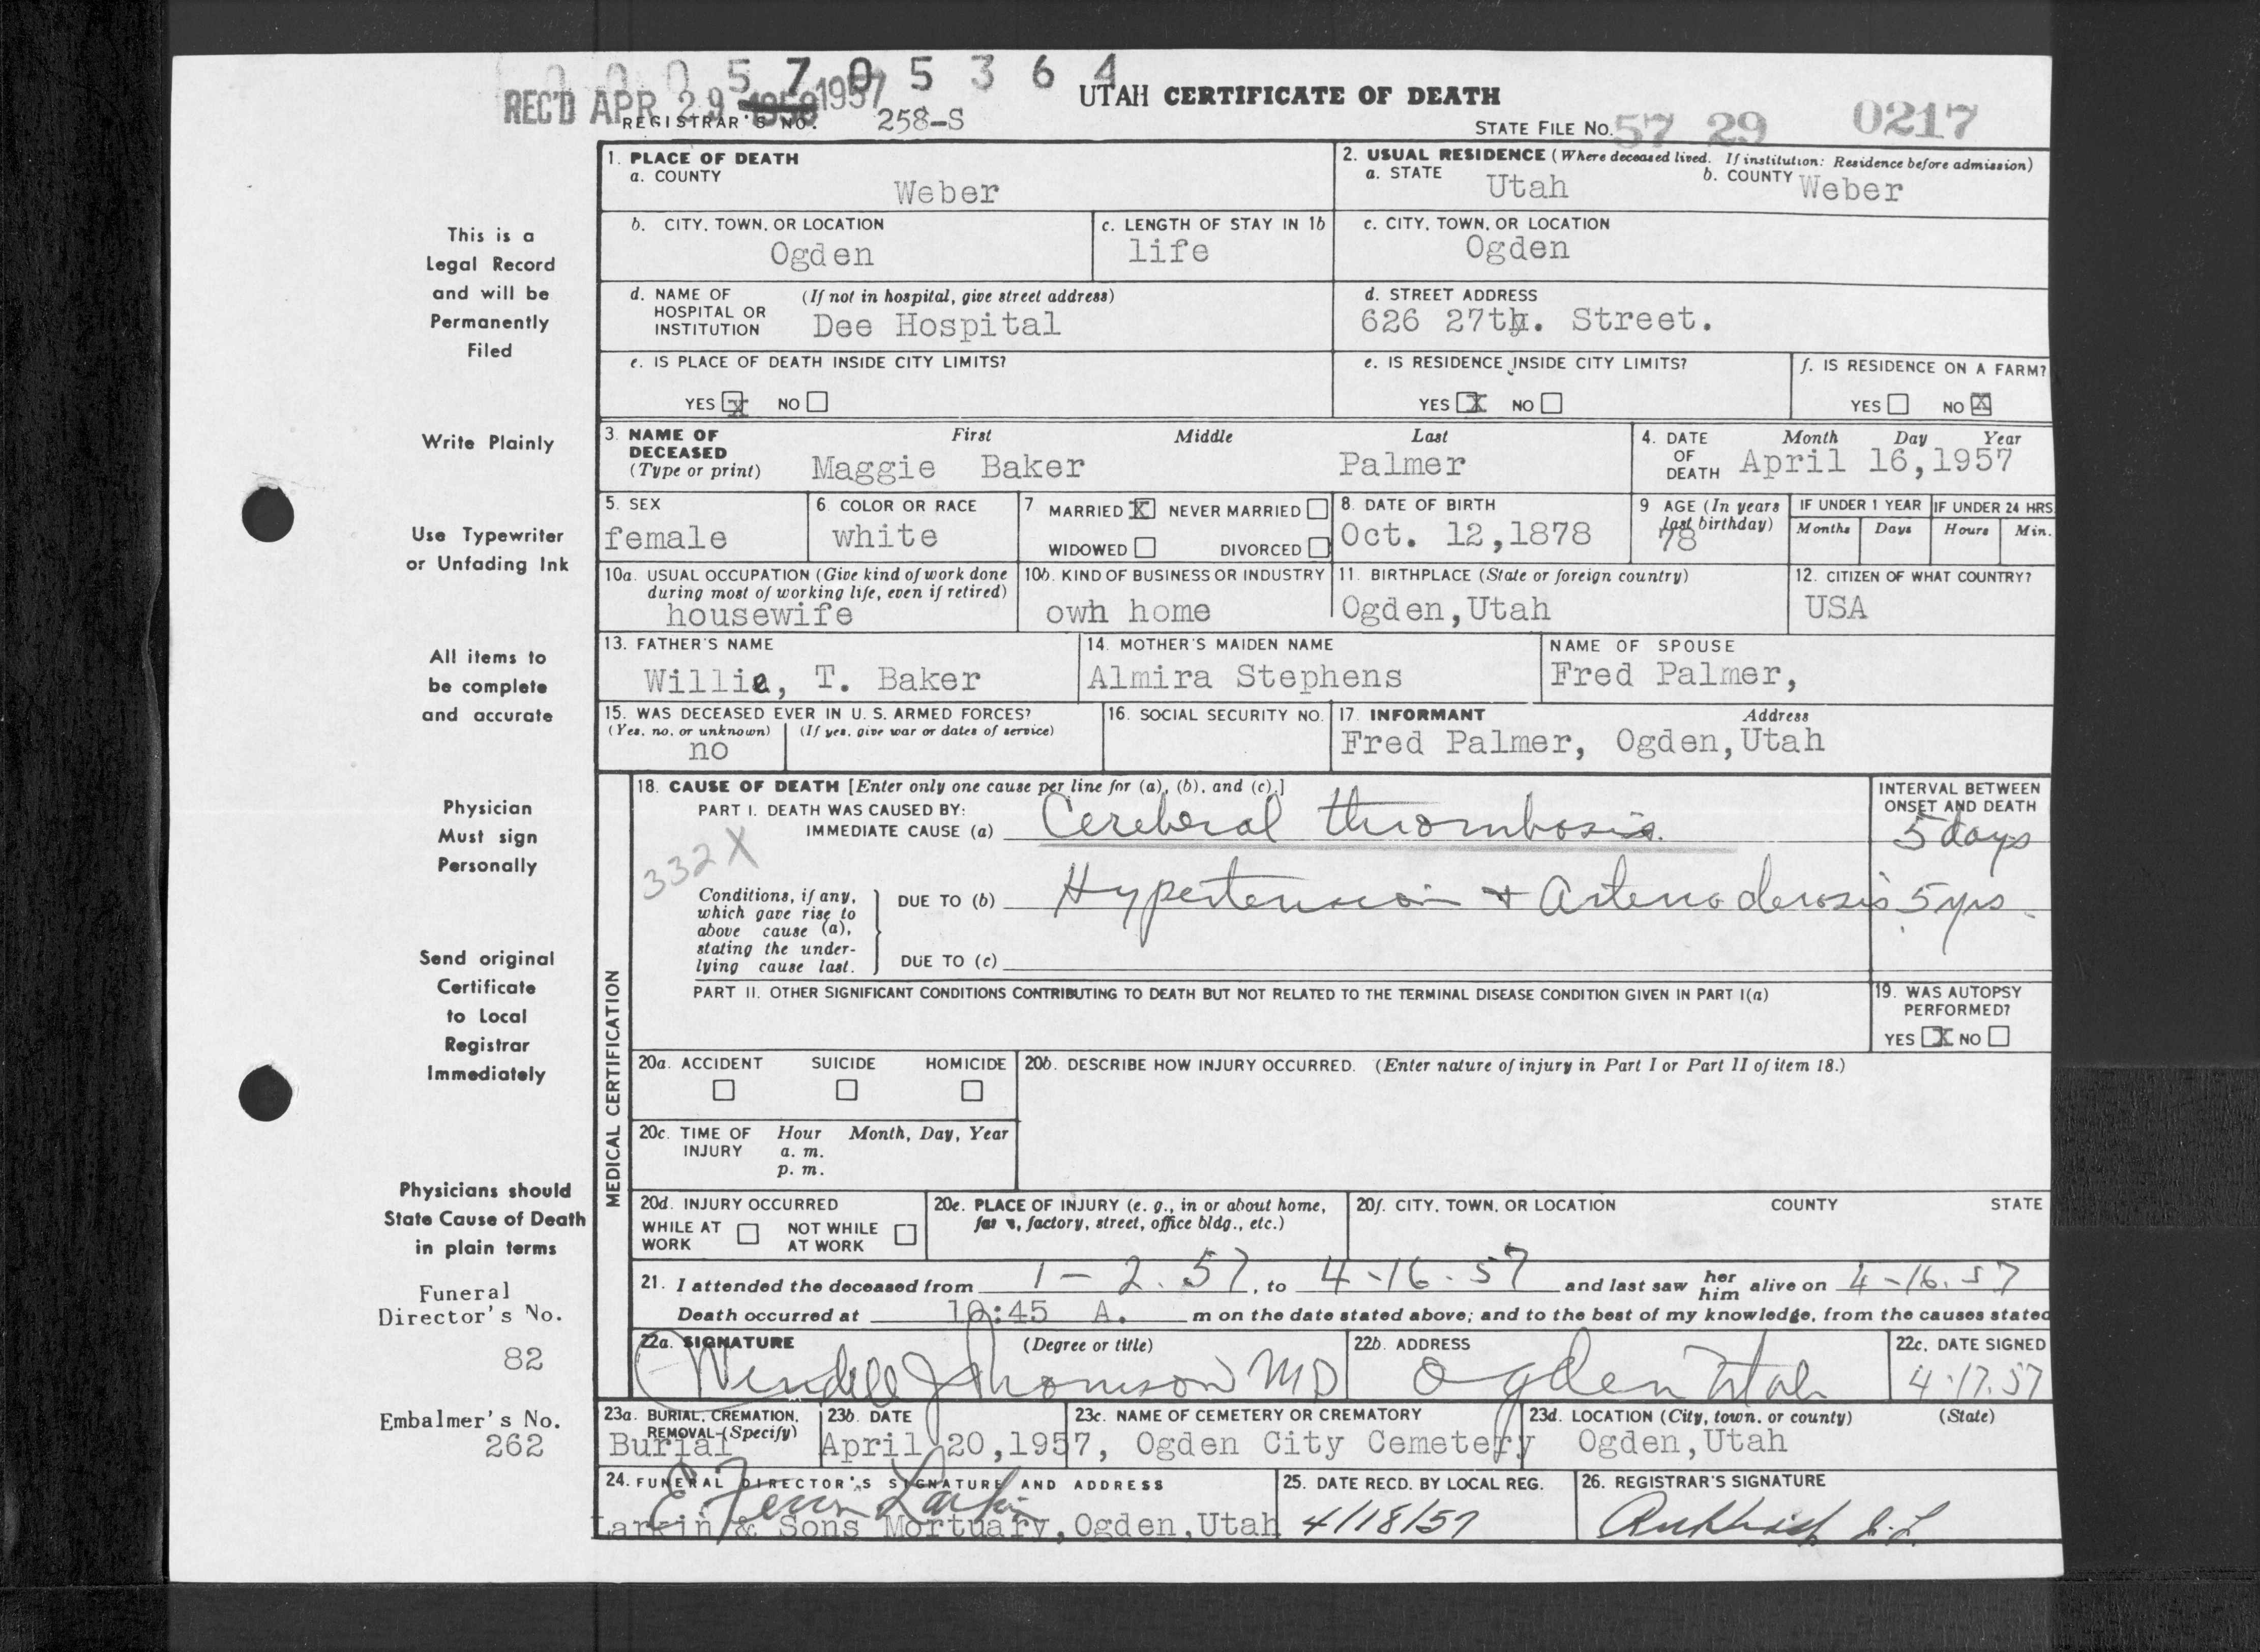 0 0 0 5 7 0 5 3 6 4
REC'D APR 29 1958 1957
UTAH CERTIFICATE OF DEATH
REGISTRAR'S NO. 258-S
STATE FILE NO. 57 29 0217
1. PLACE OF DEATH
a. COUNTY
Weber
2. USUAL RESIDENCE (Where deceased lived. If institution: Residence before admission)
a. STATE Utah b. COUNTY Weber
b. CITY, TOWN, OR LOCATION
Ogden
c. LENGTH OF STAY IN 1b
life
c. CITY, TOWN, OR LOCATION
Ogden
d. NAME OF HOSPITAL OR INSTITUTION (If not in hospital, give street address)
Dee Hospital
d. STREET ADDRESS
626 27th. Street.
e. IS PLACE OF DEATH INSIDE CITY LIMITS?
YES X NO
e. IS RESIDENCE INSIDE CITY LIMITS?
YES X NO
f. IS RESIDENCE ON A FARM?
YES NO X
3. NAME OF DECEASED (Type or print)
First Middle Last
Maggie Baker Palmer
4. DATE OF DEATH Month Day Year
April 16,1957
5. SEX
female
6. COLOR OR RACE
white
7 MARRIED X NEVER MARRIED
WIDOWED DIVORCED
8. DATE OF BIRTH
Oct. 12,1878
9 AGE (In years last birthday)
78
IF UNDER 1 YEAR
Months Days
IF UNDER 24 HRS
Hours Min.
10a. USUAL OCCUPATION (Give kind of work done during most of working life, even if retired)
housewife
10b. KIND OF BUSINESS OR INDUSTRY
own home
11. BIRTHPLACE (State or foreign country)
Ogden,Utah
12. CITIZEN OF WHAT COUNTRY?
USA
13. FATHER'S NAME
Willie, T. Baker
14. MOTHER'S MAIDEN NAME
Almira Stephens
NAME OF SPOUSE
Fred Palmer,
15. WAS DECEASED EVER IN U. S. ARMED FORCES?
(Yes, no, or unknown) (If yes, give war or dates of service)
no
16. SOCIAL SECURITY NO.
17. INFORMANT Address
Fred Palmer, Ogden,Utah
MEDICAL CERTIFICATION
18. CAUSE OF DEATH [Enter only one cause per line for (a), (b), and (c).]
PART I. DEATH WAS CAUSED BY:
IMMEDIATE CAUSE (a) Cerebral thrombosis.
INTERVAL BETWEEN ONSET AND DEATH
5 days
332X
Conditions, if any, which gave rise to above cause (a), stating the underlying cause last.
DUE TO (b) Hypertension + Arteriosclerosis 5 yrs.
DUE TO (c)
PART II. OTHER SIGNIFICANT CONDITIONS CONTRIBUTING TO DEATH BUT NOT RELATED TO THE TERMINAL DISEASE CONDITION GIVEN IN PART I(a)
19. WAS AUTOPSY PERFORMED?
YES X NO
20a. ACCIDENT SUICIDE HOMICIDE
20b. DESCRIBE HOW INJURY OCCURRED. (Enter nature of injury in Part I or Part II of item 18.)
20c. TIME OF INJURY Hour Month, Day, Year
a. m.
p. m.
20d. INJURY OCCURRED
WHILE AT WORK NOT WHILE AT WORK
20e. PLACE OF INJURY (e. g., in or about home, farm, factory, street, office bldg., etc.)
20f. CITY, TOWN, OR LOCATION COUNTY STATE
21. I attended the deceased from 1-2.57, to 4-16.57 and last saw her him alive on 4-16.57
Death occurred at 10:45 A. m on the date stated above; and to the best of my knowledge, from the causes stated
22a. SIGNATURE (Degree or title)
Wendell J Thomson MD
22b. ADDRESS
Ogden Utah
22c. DATE SIGNED
4.17.57
23a. BURIAL, CREMATION, REMOVAL (Specify)
Burial
23b. DATE
April 20,1957,
23c. NAME OF CEMETERY OR CREMATORY
Ogden City Cemetery
23d. LOCATION (City, town, or county) (State)
Ogden,Utah
24. FUNERAL DIRECTOR'S SIGNATURE AND ADDRESS
Larkin
Larkin & Sons Mortuary,Ogden,Utah
25. DATE RECD. BY LOCAL REG.
4/18/57
26. REGISTRAR'S SIGNATURE
This is a
Legal Record
and will be
Permanently
Filed
Write Plainly
Use Typewriter
or Unfading Ink
All items to
be complete
and accurate
Physician
Must sign
Personally
Send original
Certificate
to Local
Registrar
Immediately
Physicians should
State Cause of Death
in plain terms
Funeral
Director's No.
82
Embalmer's No.
262